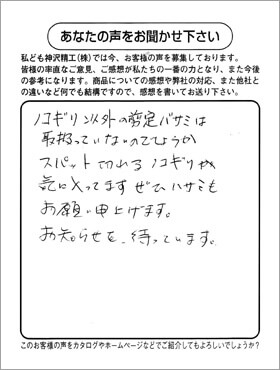 あなたの声をお聞かせ下さい
私ども神沢精工(株)では今、お客様の声を募集しております。
皆様の率直なご意見、ご感想が私たちの一番の力となり、また今後
の参考になります。商品についての感想や弊社の対応、また他社と
の違いなど何でも結構ですので、感想を書いてお送り下さい。
ノコギリ以外の剪定バサミは
取扱っていないのでしょうか
スパット切れるノコギリが
気に入ってます ぜひハサミも
お願い申上げます。
お知らせを、待っています。
このお客様の声をカタログやホームページなどでご紹介してもよろしいでしょうか?